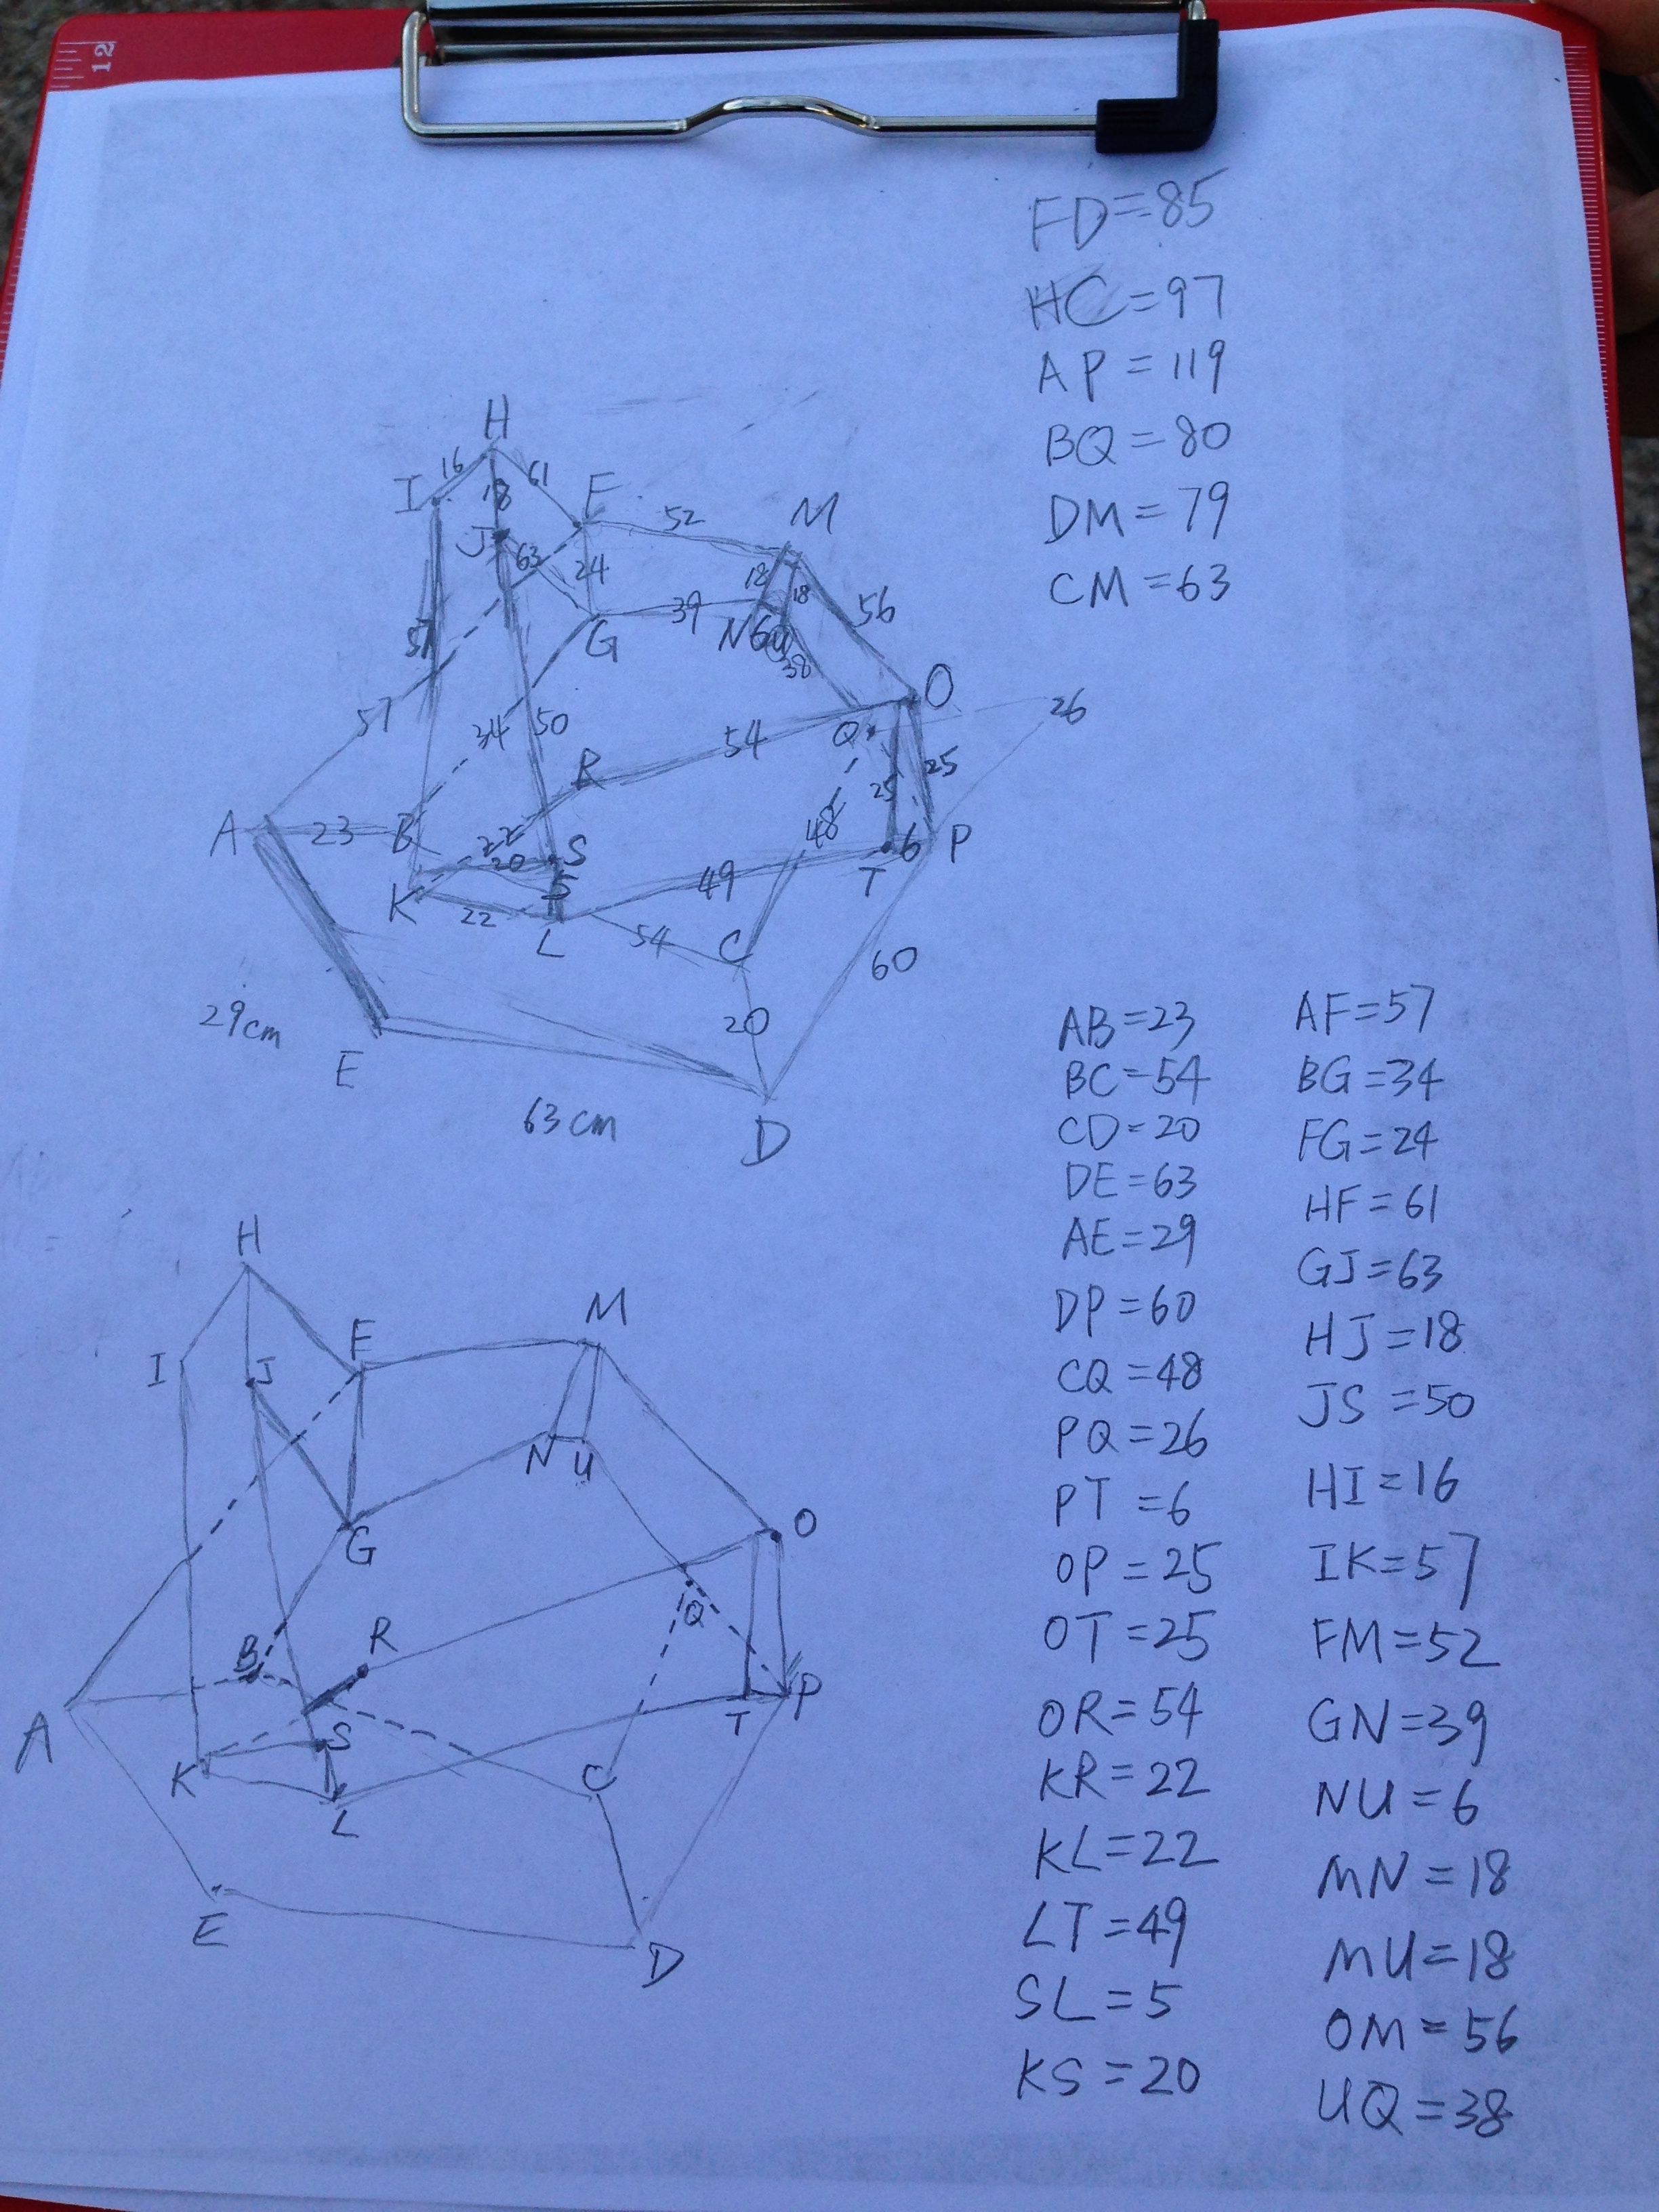 12
FD=85
HC=97
AP=119
BQ=80
DM=79
CM=63
H
I 16 18 61 F
J 63 24 52 M
57 39 18 18 56
G N 6 U 38 O
57 34 50 54 Q 26
R 25 25
A 23 B 22 48
20 S 5 49 T 6 P
K 22 L 54 C 60
29cm 20
E 63cm D
H
M
I J F
N U
G O
B R Q
A S T P
K L C
E D
AB=23
BC=54
CD=20
DE=63
AE=29
DP=60
CQ=48
PQ=26
PT=6
OP=25
OT=25
OR=54
KR=22
KL=22
LT=49
SL=5
KS=20
AF=57
BG=34
FG=24
HF=61
GJ=63
HJ=18
JS=50
HI=16
IK=57
FM=52
GN=39
NU=6
MN=18
MU=18
OM=56
UQ=38